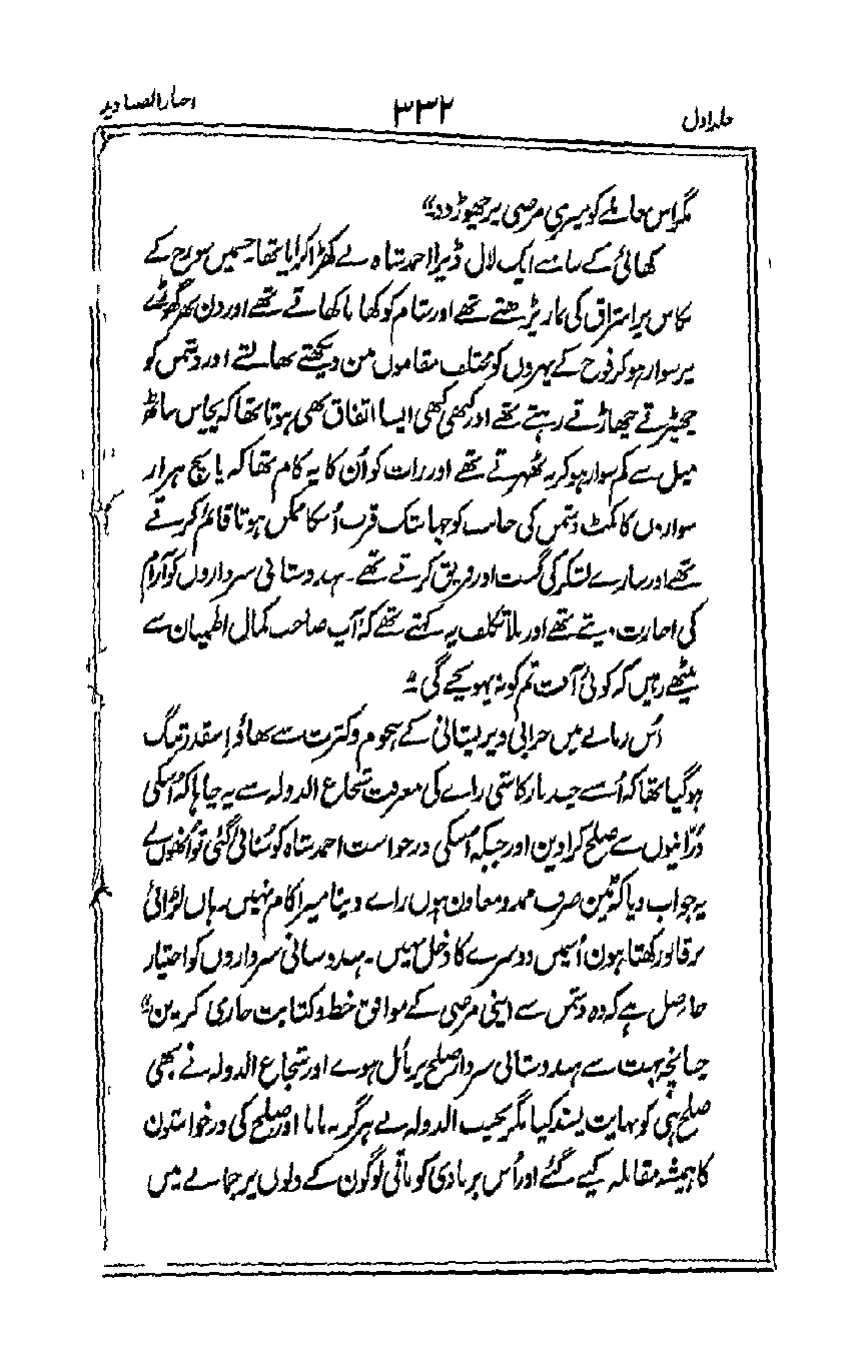 جلد اول ۳۳۲ اخبار الصنادید
مگر اس معاملے کو میری مرضی پر چھوڑ دو“
کھائی کے سامنے ایک لال ڈیرا احمد شاہ نے کھڑا کرایا تھا جسمیں سورج کے
نکاس پر اشراق کی نماز پڑھتے تھے اور شام کو کھانا کھاتے تھے اور دن بھر گھوڑے
پر سوار ہو کر فوج کے پہروں کو مختلف مقاموں مین دیکھتے بھالتے اور دشمن کو
چھیڑتے چھاڑتے رہتے تھے اور کبھی کبھی ایسا اتفاق بھی ہوتا تھا کہ پچاس ساٹھ
میل سے کم سوار ہو کر نہ ٹھہرتے تھے اور رات کو اُن کا یہ کام تھا کہ پانچ ہزار
سواروں کا کمٹ دشمن کی جانب کو جہانتک قرب اُسکا ممکن ہوتا قائم کرتے
تھے اور سارے لشکر کی گشت اور کرتے تھے۔ ہندوستانی سرداروں کو آرام
کی اجازت دیتے تھے اور بلا تکلف یہ کہتے تھے کہ آپ صاحب کمال اطمینان سے
بیٹھے رہیں کہ کوئی آفت تم کو نہ پہونچے گی۔
اُس زمانے میں خرابی و پریشانی کے ہجوم و کثرت سے بھاؤ اِسقدر تنگ
ہو گیا تھا کہ اُسنے چند بار کاشی راے کی معرفت شجاع الدولہ سے یہ چاہا کہ اُسکی
دُرّانیوں سے صلح کرا دین اور جبکہ اُسکی درخواست احمد شاہ کو سُنائی گئی تو اُنھوں نے
یہ جواب دیا کہ ”مین صرف ممد و معاون ہوں راے دینا میرا کام نہیں۔ ہاں لڑائی
پر قابو رکھتا ہون اُسمیں دوسرے کا دخل نہیں۔ ہندوستانی سرداروں کو اختیار
حاصل ہے کہ وہ دشمن سے اپنی مرضی کے موافق خط و کتابت جاری کرین“
چنانچہ بہت سے ہندوستانی سردار صلح پر مائل ہوے اور شجاع الدولہ نے بھی
صلح کو نہایت پسند کیا مگر نجیب الدولہ نے ہرگز نہ مانا اور صلح کی درخواستون
کا ہمیشہ مقابلہ کیے گئے اور اُس بربادی کو باقی لوگون کے دلوں پر جمانے میں